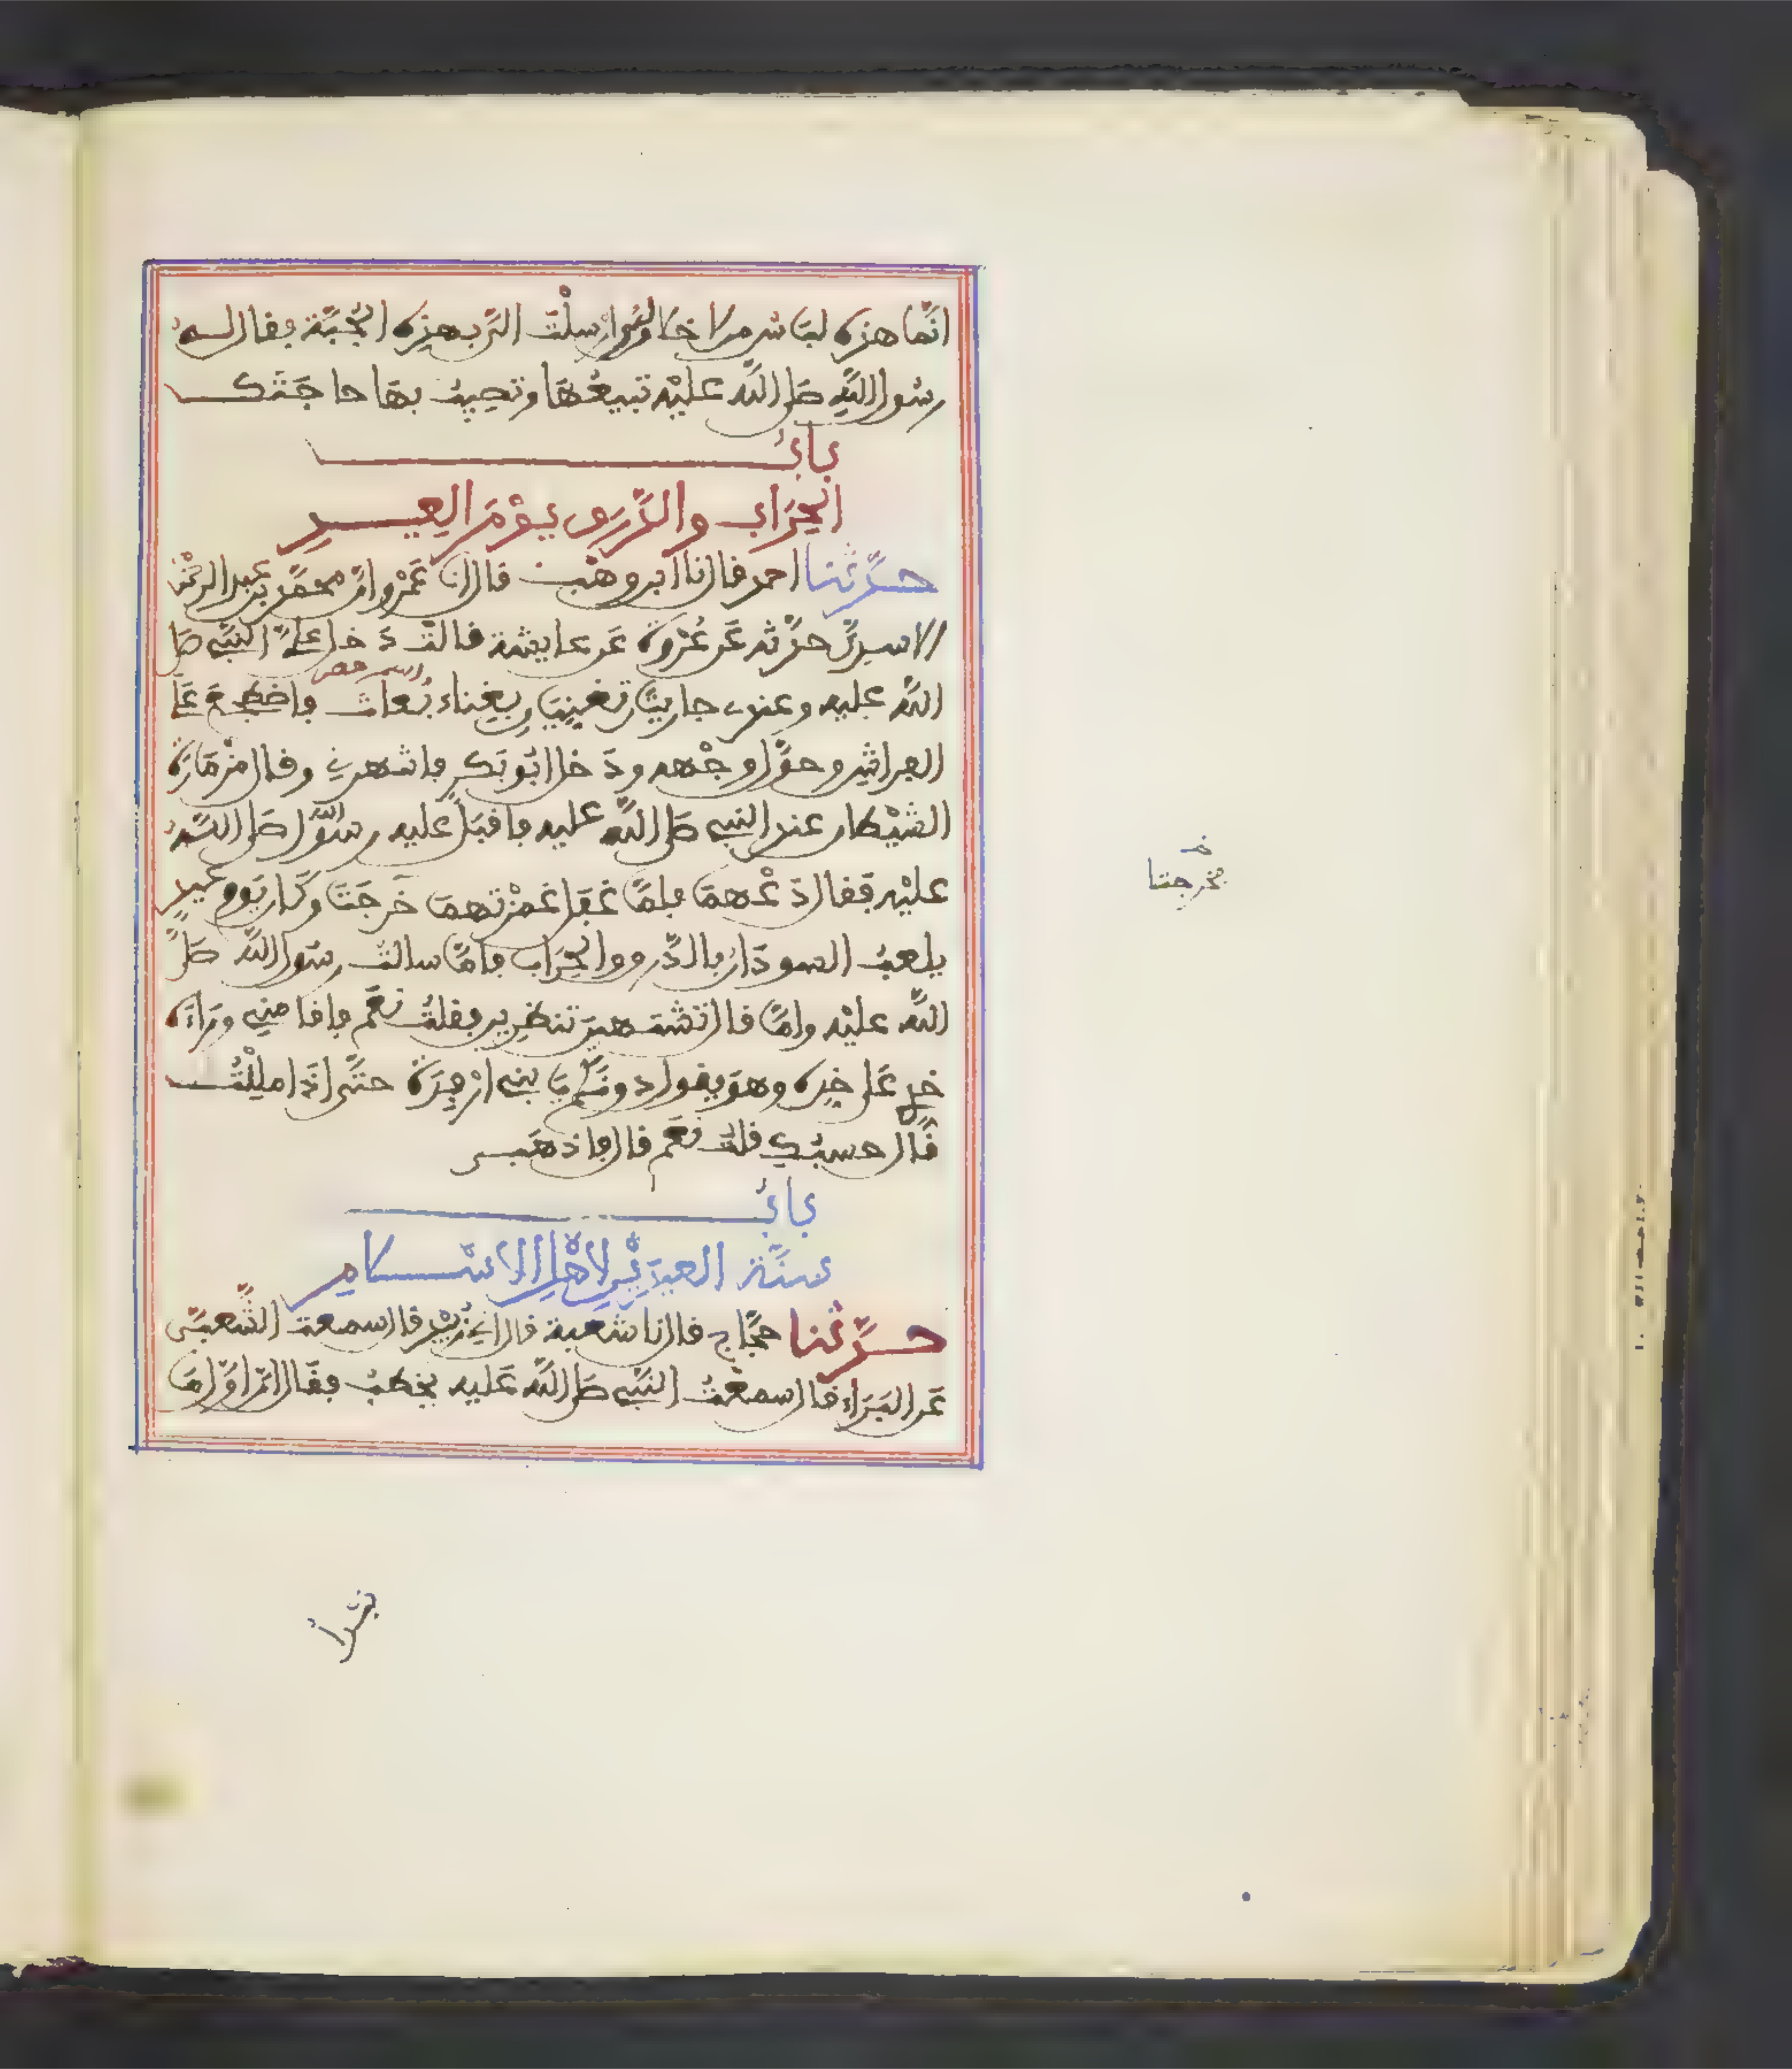 انما هذه لباس من لا خلاق له وارسلت الي بهذه الجبة فقال له
رسول الله صلى الله عليه تبيعها وتصيب بها حاجتك
باب
الحراب والدرق يوم العيد
حدثنا احمد قال نا ابن وهب قال انا عمرو ان محمد بن عبد الرحمن
الاسدي حدثه عن عروة عن عايشة قالت دخل علي النبي صلى
الله عليه وعندي جاريتان تغنيان بغناء بعاث فاضطجع على
الفراش وحول وجهه ودخل ابو بكر فانتهرني وقال مزمارة
الشيطان عند النبي صلى الله عليه فاقبل عليه رسول الله صلى الله
عليه فقال دعهما فلما غفل غمزتهما خرجتا وكان يوم عيد
يلعب السودان بالدرق والحراب فاما سالت رسول الله صلى
الله عليه واما قال تشتهين تنظرين فقلت نعم فاقامني وراءه
خدي على خده وهو يقول دونكم يا بني ارفدة حتى اذا مللت
قال حسبك قلت نعم قال فاذهبي
باب
سنة العيدين لاهل الاسلام
حدثنا حجاج قال نا شعبة قال اني زبيد قال سمعت الشعبي
عن البراء قال سمعت النبي صلى الله عليه يخطب فقال ان اول ما
فخرجتا
نبدأ